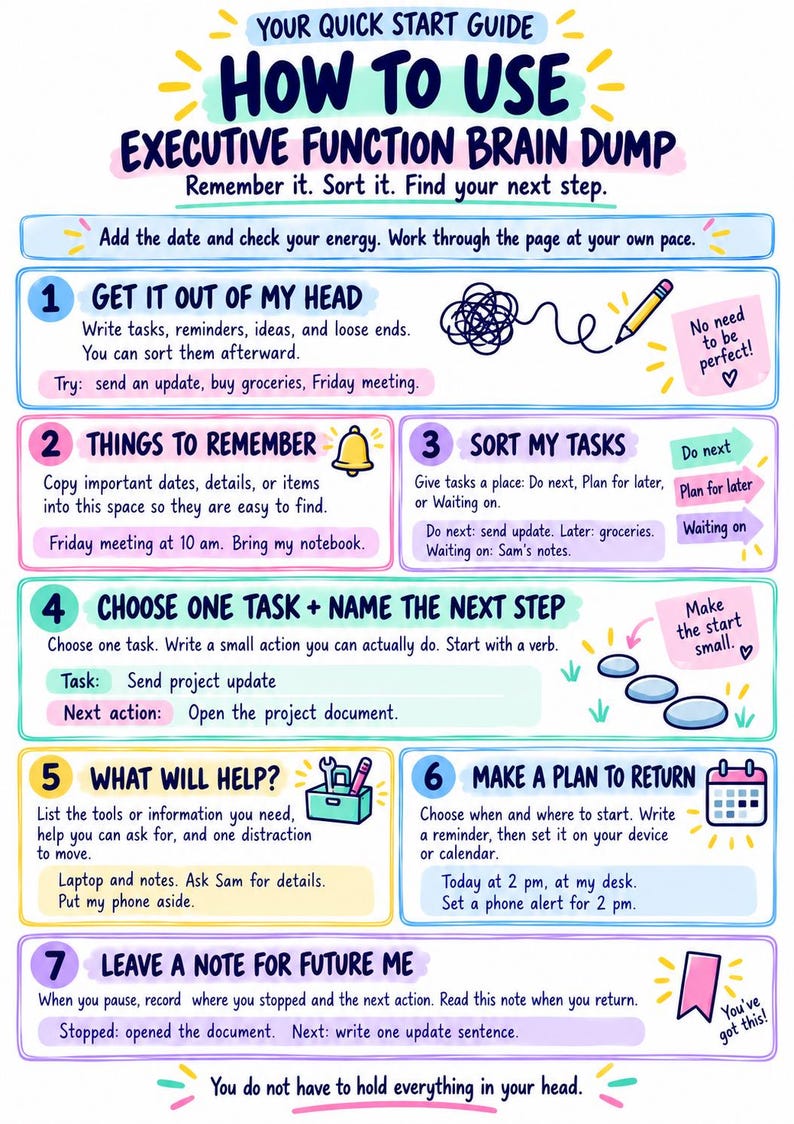 YOUR QUICK START GUIDE
HOW TO USE
EXECUTIVE FUNCTION BRAIN DUMP
Remember it. Sort it. Find your next step.
Add the date and check your energy. Work through the page at your own pace.
1 GET IT OUT OF MY HEAD
Write tasks, reminders, ideas, and loose ends.
You can sort them afterward.
Try: send an update, buy groceries, Friday meeting.
No need
to be
perfect!
2 THINGS TO REMEMBER
Copy important dates, details, or items
into this space so they are easy to find.
Friday meeting at 10 am. Bring my notebook.
3 SORT MY TASKS
Give tasks a place: Do next, Plan for later,
or Waiting on.
Do next: send update. Later: groceries.
Waiting on: Sam's notes.
Do next
Plan for later
Waiting on
4 CHOOSE ONE TASK + NAME THE NEXT STEP
Choose one task. Write a small action you can actually do. Start with a verb.
Task: Send project update
Next action: Open the project document.
Make
the start
small.
5 WHAT WILL HELP?
List the tools or information you need,
help you can ask for, and one distraction
to move.
Laptop and notes. Ask Sam for details.
Put my phone aside.
6 MAKE A PLAN TO RETURN
Choose when and where to start. Write
a reminder, then set it on your device
or calendar.
Today at 2 pm, at my desk.
Set a phone alert for 2 pm.
7 LEAVE A NOTE FOR FUTURE ME
When you pause, record where you stopped and the next action. Read this note when you return.
Stopped: opened the document. Next: write one update sentence.
You've
got this!
You do not have to hold everything in your head.